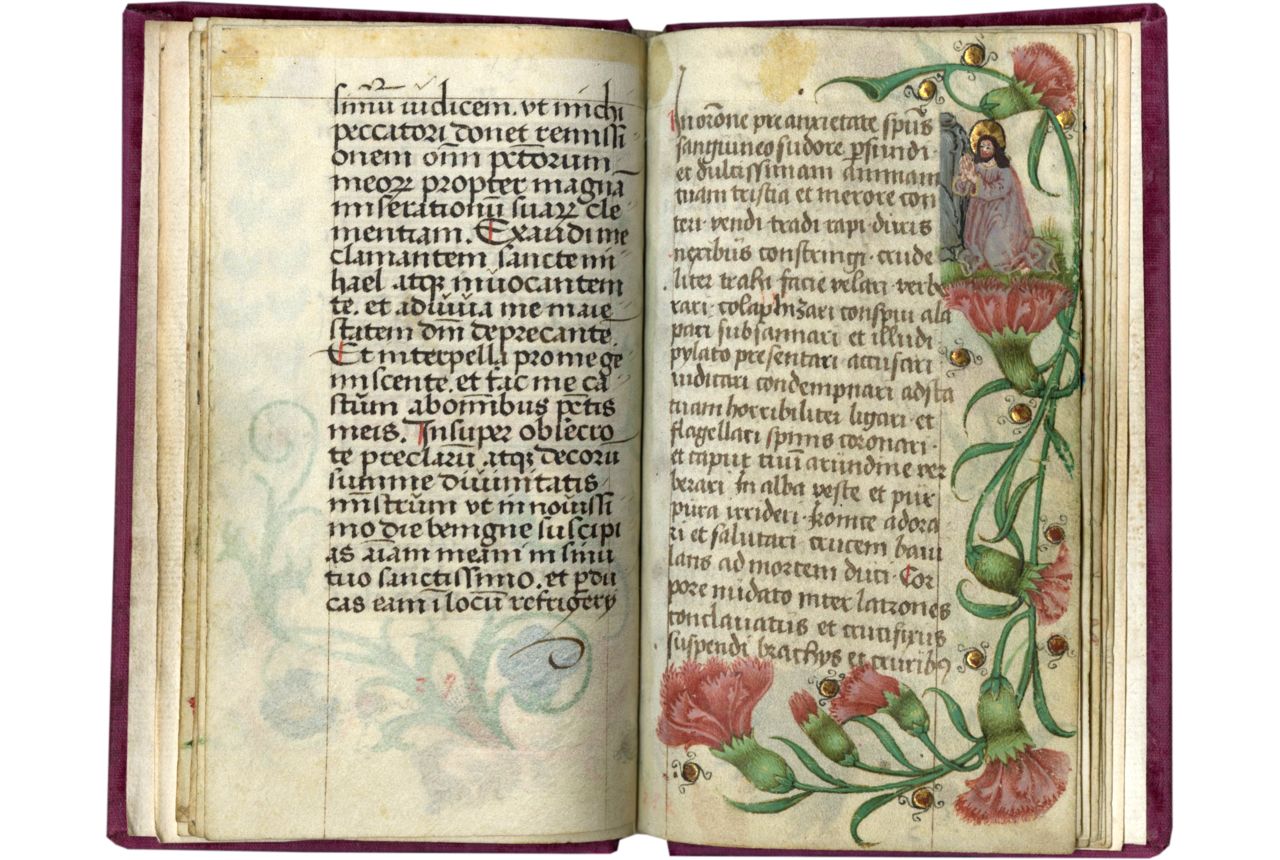 simū iudicem. vt michi
peccatori donet remissi
onem om̄ pctōrum
meoꝝ propter magnā
miserationū suaꝝ cle
mentiam. Exaudi me
clamantem sancte mi
hael atqꝫ inuocantem
te. et adiuua me maie
statem dm̄ deprecante
Et interpella pro me ge
miscente. et fac me ca
stūm ab om̄ibus pctīs
meis. Insuper obsecro
te preclarū atqꝫ decorū
summe diuinitatis
mīstrum vt in nouissi
mo die benigne suscipi
as aīam meam in sinu
tuo sanctissimo. et ꝑdu
cas eam ī locū refrigerÿ
In orōne pre anxietate spūs
sanguineo sudore ꝑfundi·
et dulcissimam animam
tuam tristia et merore con
teri· vendi· tradi· rapi· diris
nexibus constringi· crude
liter trahi facie velari· verbe
rari· colaphizari conspui ala
pari subsannari et illudi·
pylato presentari· accusari
iudicari condempnari ad sta
tuam horribiliter ligari· et
flagellari spinis coronari·
et caput tuū arundine ver
berari In alba veste et pur
pura irrideri· ficticie adora
ri et salutari crucem baiu
lans ad mortem duci· Cor
pore nudato inter latrones
conclauatus et crucifixus
suspendi brachÿs et cruribꝫ